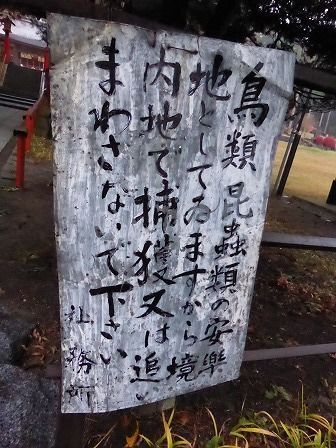 鳥類昆蟲類の安樂
地としてゐますから境
内地で捕獲又は追い
まわさないで下さい
社務所